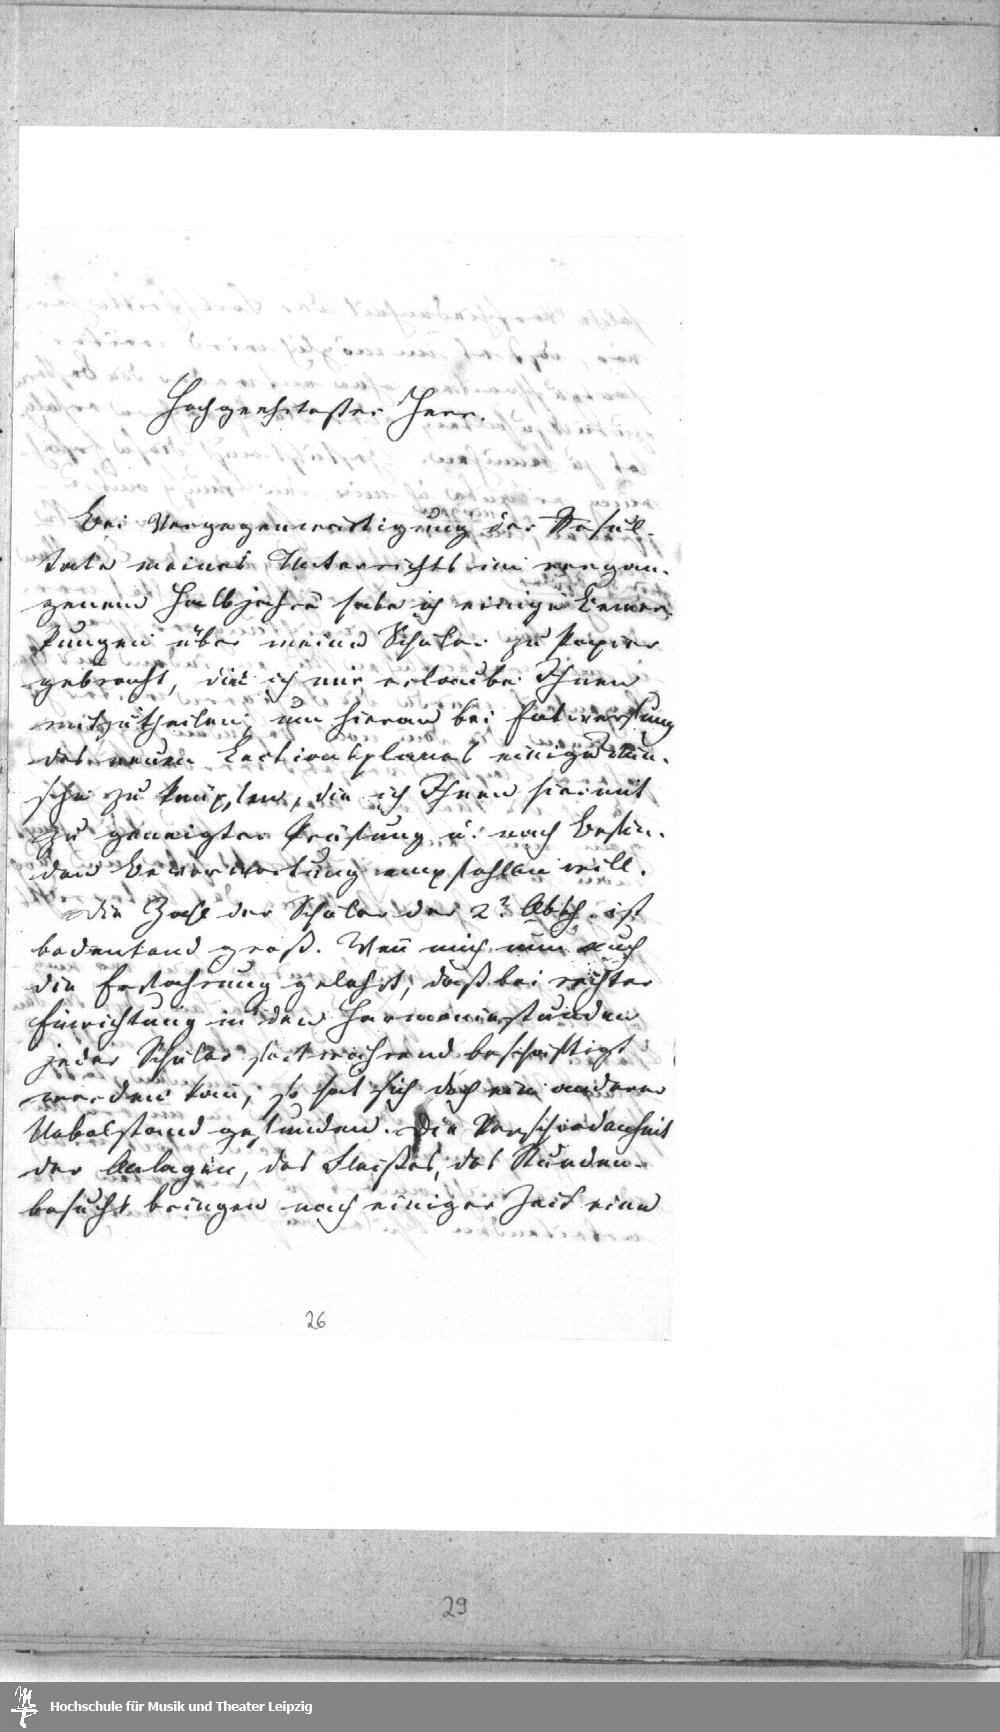 Hochgeehrtester Herr.
Bei Vergegenwärtigung der Resul-
tate meines Unterrichts im vergan-
genen Halbjahre habe ich einige Bemer-
kungen über meine Schüler zu Papier
gebracht, die ich mir erlaube Ihnen
mitzutheilen, um hieran bei Entwerfung
des neuen Lectionsplanes einige Wün-
sche zu knüpfen, die ich Ihnen hiermit
zu geneigter Prüfung u. nach Befin-
den Bevorwortung empfehlen will.
Die Zahl der Schüler der 2n Abth. ist
bedeutend groß. Wenn mich nun auch
die Erfahrung gelehrt, daß bei rechter
Einrichtung in den Harmoniestunden
jeder Schüler fortwährend beschäftigt
werden kann, so hat sich doch ein anderer
Uebelstand gefunden. Die Verschiedenheit
der Anlagen, des Fleißes, des Stunden-
besuchs bringen nach einiger Zeit eine
26
29
Hochschule für Musik und Theater Leipzig